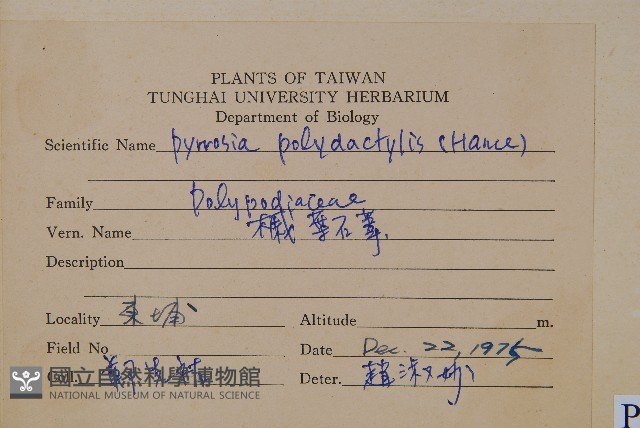 PLANTS OF TAIWAN
TUNGHAI UNIVERSITY HERBARIUM
Department of Biology
Scientific Name pyrrosia polydactylis (Hance)
Family Polypodiaceae
Vern. Name 槭葉石葦
Description
Locality 東埔
Altitude m.
Field No
Date Dec. 22, 1975
Col.
Deter. 趙淑妙
國立自然科學博物館
NATIONAL MUSEUM OF NATURAL SCIENCE
P